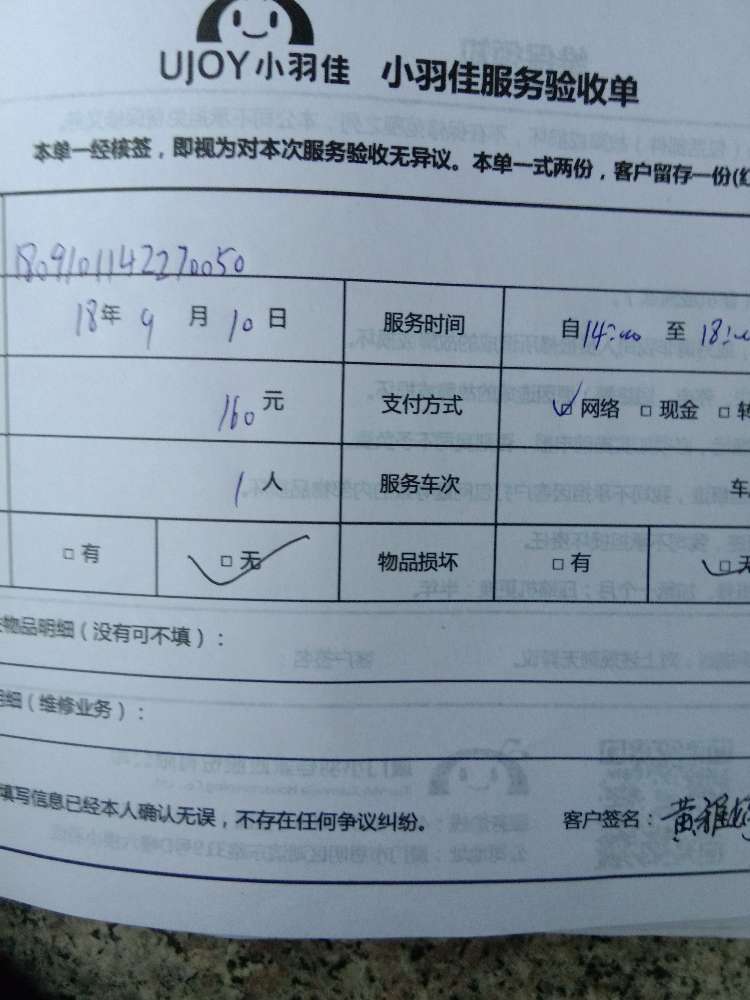 UJOY小羽佳 小羽佳服务验收单
本单一经核签，即视为对本次服务验收无异议。本单一式两份，客户留存一份(红
1809101142270050
18年 9 月 10 日 服务时间 自14:00 至 18:00
160 元 支付方式 ☑网络 □现金 □转
1 人 服务车次 车
□有 ☑无 物品损坏 □有 ☑无
物品明细（没有可不填）：
明细（维修业务）：
填写信息已经本人确认无误，不存在任何争议纠纷。 客户签名：黄雅